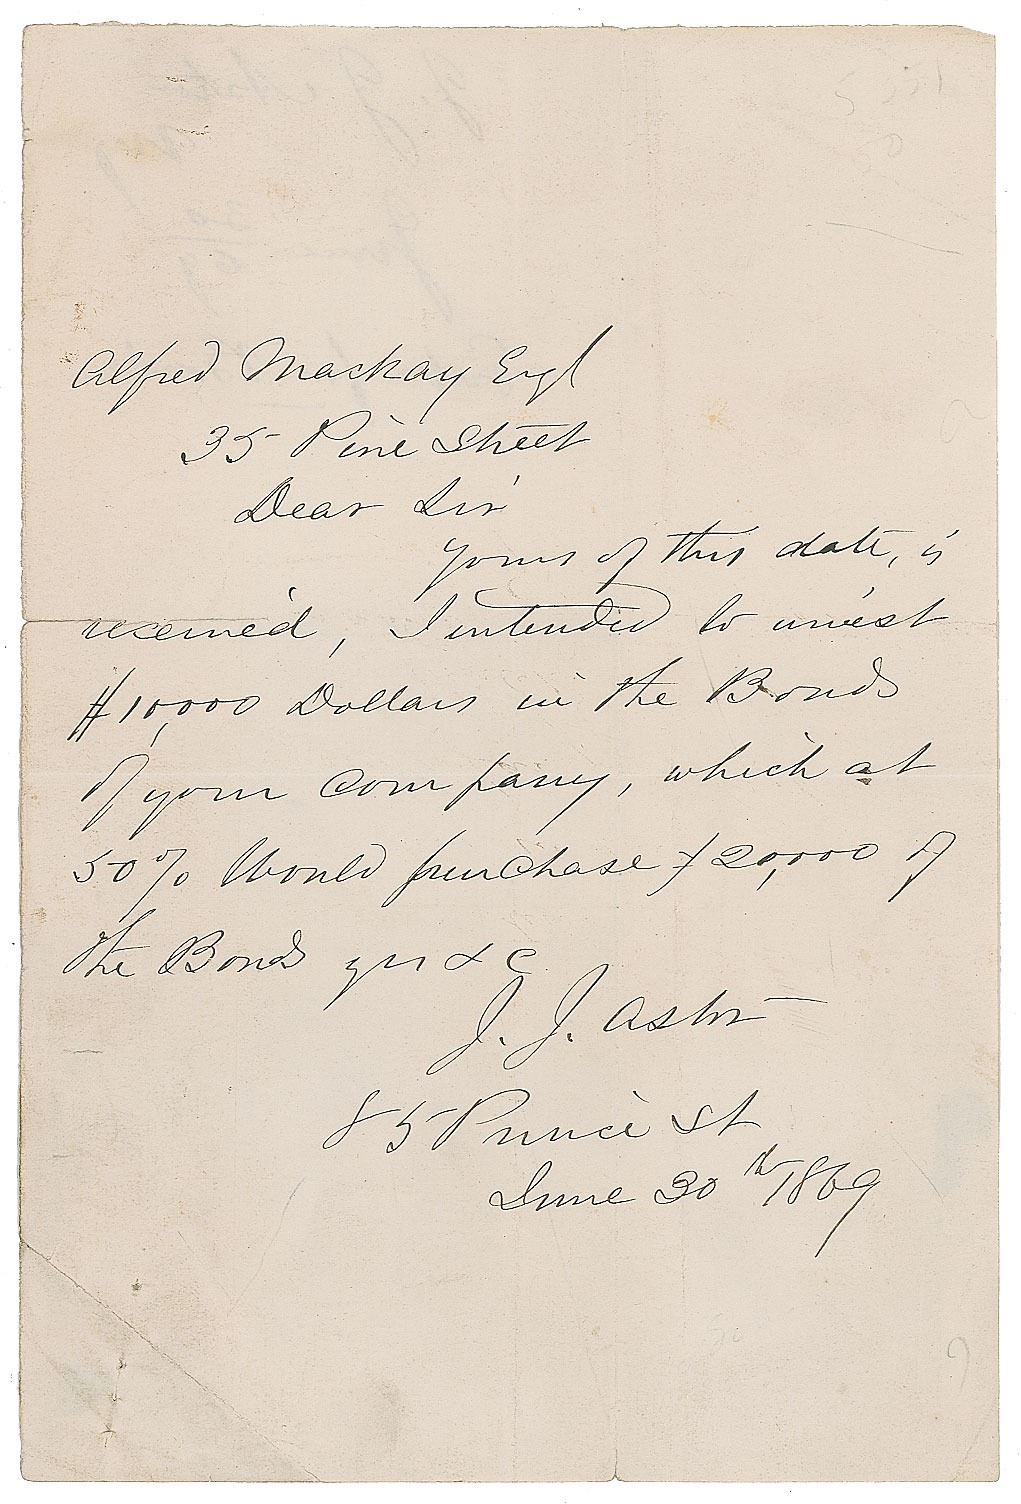 Alfred Mackay Esq
35 Pine Street
Dear Sir
yours of this date, is
received, I intended to invest
$10,000 Dollars in the Bonds
of your company, which at
50% Would purchase $20,000 of
the Bonds yrs & c
J. J. Astor
85 Prince St
June 30th 1869